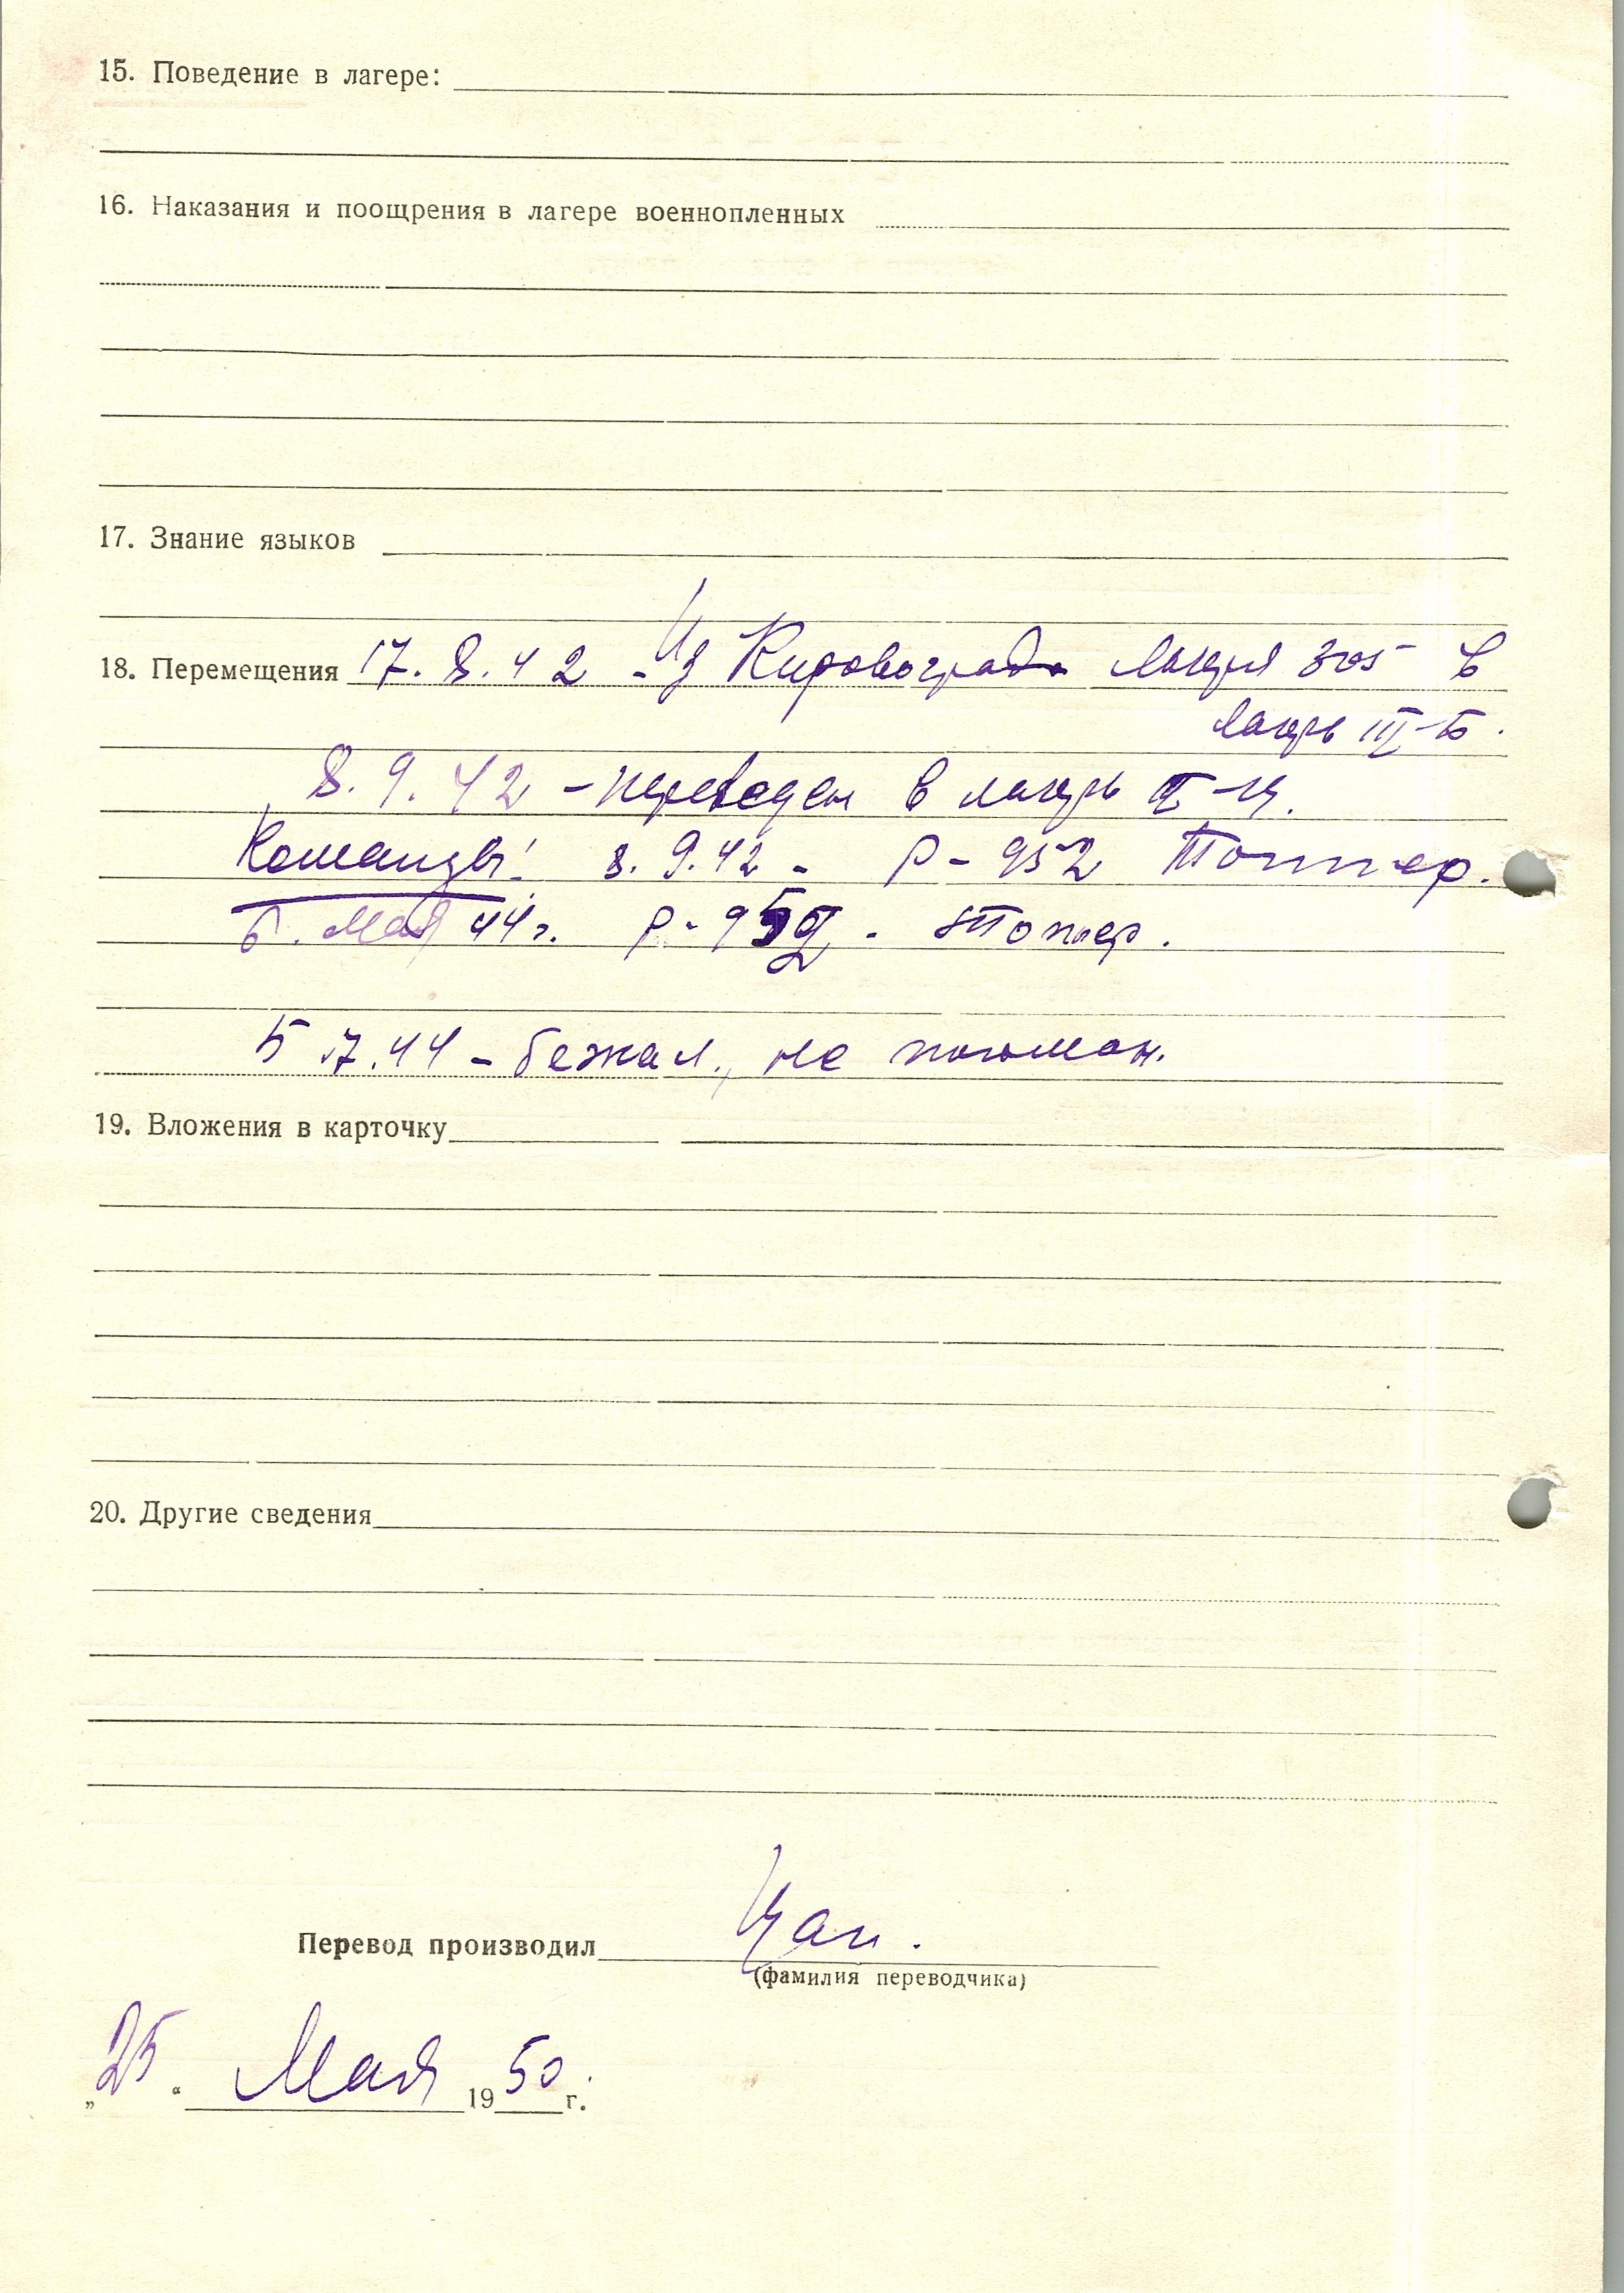 15. Поведение в лагере:
16. Наказания и поощрения в лагере военнопленных
17. Знание языков
18. Перемещения 17.8.42 - Из Кировограда лагеря 305 в
лагерь III-Б.
8.9.42 - переведен в лагерь
Команды: 8.9.42 - Р-952
6. Мая 44 г. Р-
5.7.44 - бежал, не пойман.
19. Вложения в карточку
20. Другие сведения
Перевод производил
(фамилия переводчика)
„25“ Мая 1950 г.